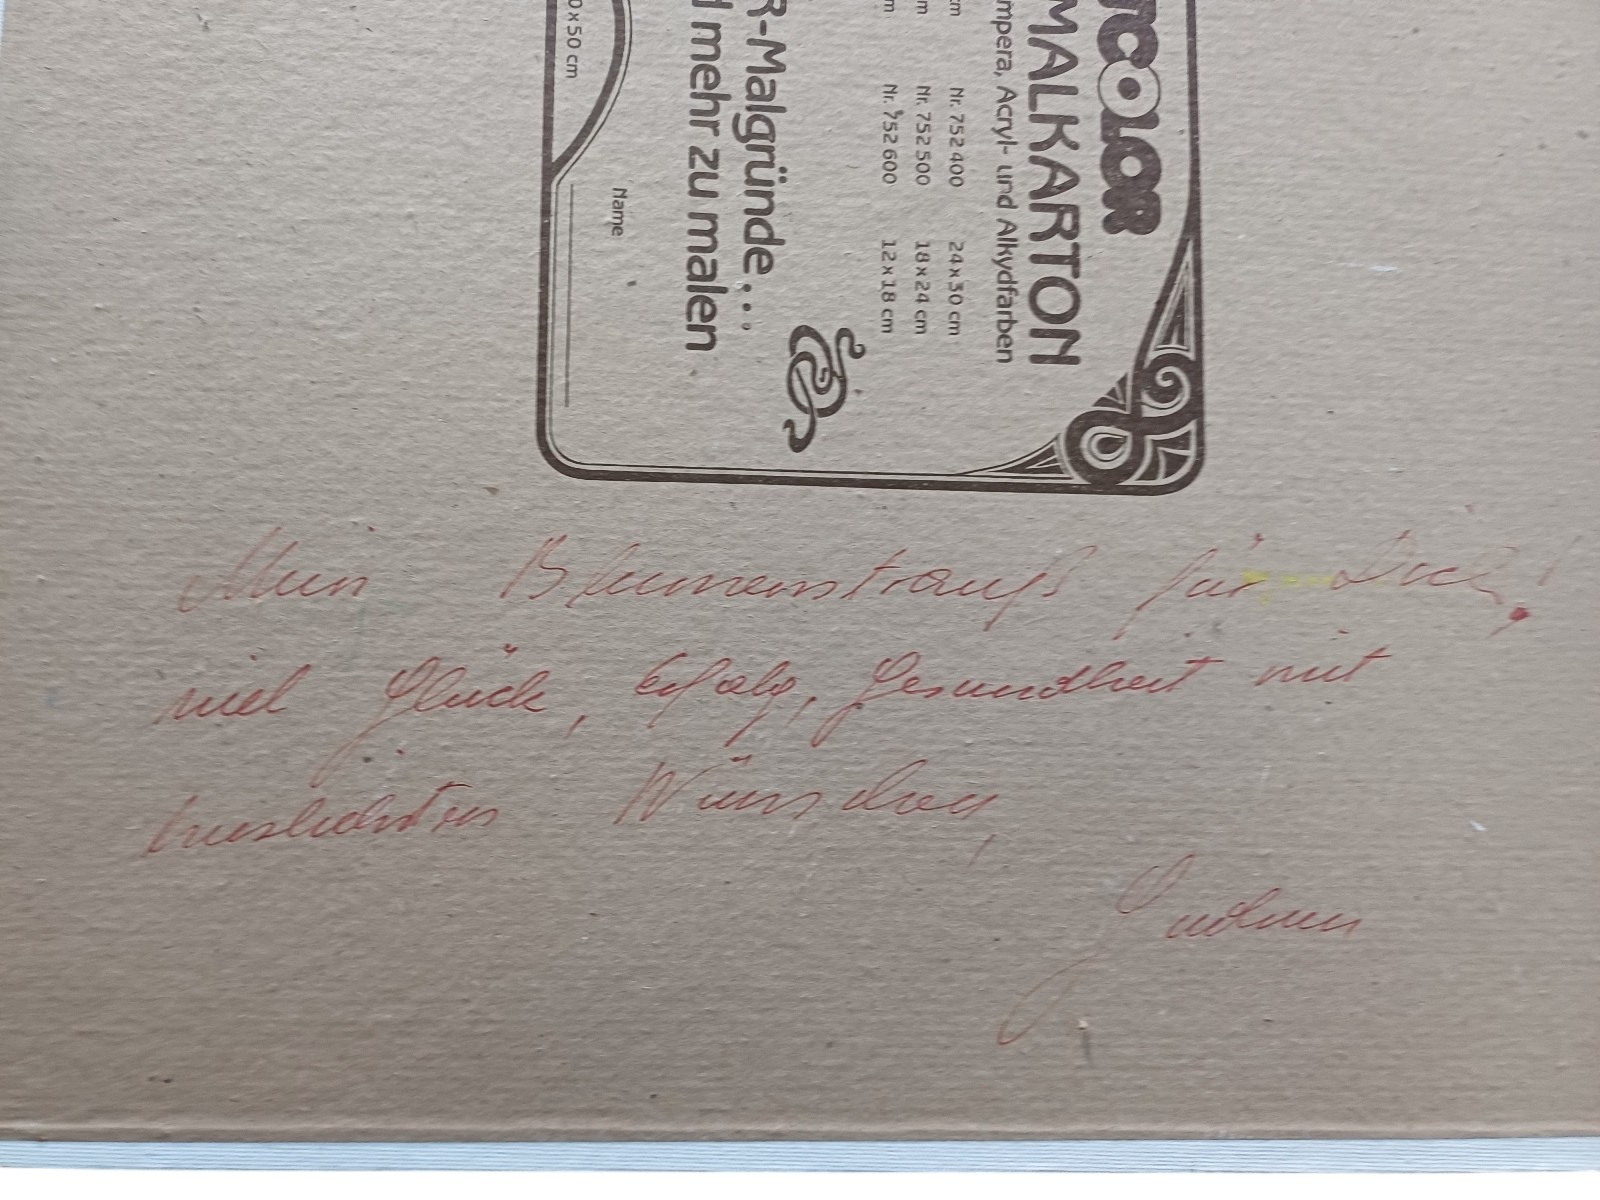 TCOLOR
MALKARTON
mpera, Acryl- und Alkydfarben
cm Nr. 752 400 24 x 30 cm
m Nr. 752 500 18 x 24 cm
m Nr. 752 600 12 x 18 cm
R-Malgründe...
d mehr zu malen
Name
0 x 50 cm
Mein Blumenstrauß für Dich!
viel Glück, Erfolg, Gesundheit mit
herzlichsten Wünschen,
Gudrun